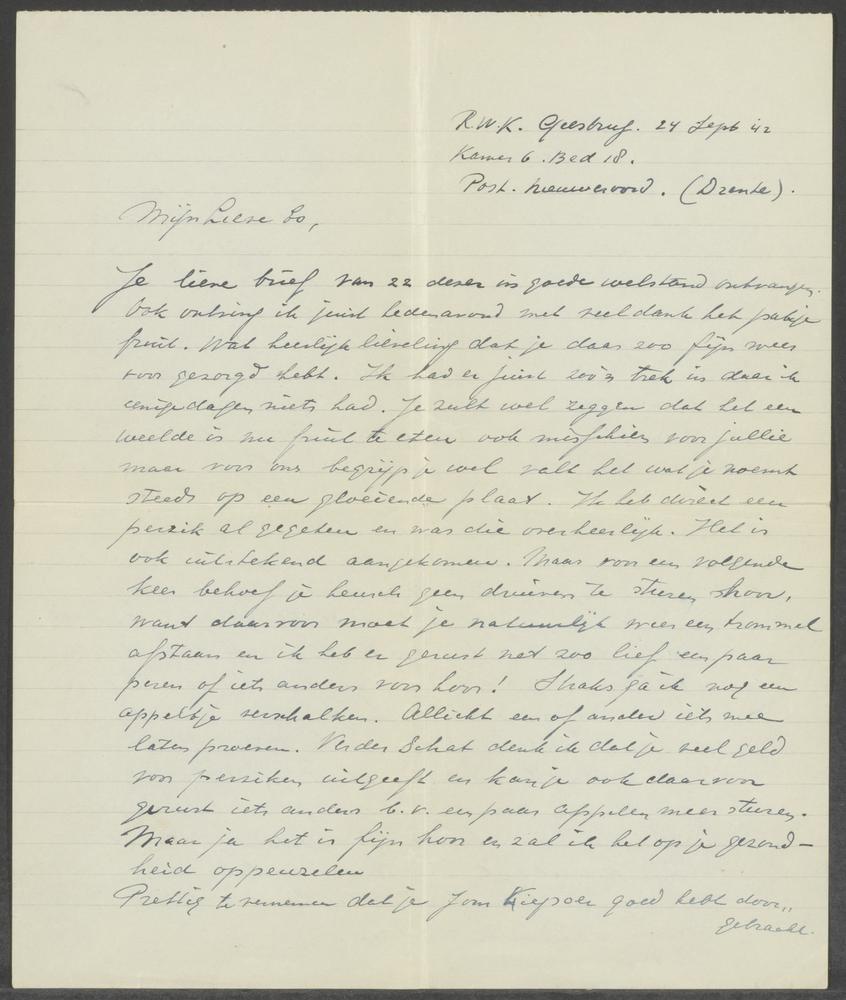 R.W.K. Geesbrug. 24 Sept 42
Kamer 6. Bed 18.
Post. Nieuweroord. (Drente).
Mijn Lieve Lo,
Je lieve brief van 22 dezer in goede welstand ontvangen.
Ook ontving ik juist hedenavond met veel dank het pakje
fruit. Wat heerlijk lieveling dat je daar zoo fijn weer
voor gezorgd hebt. Ik had er juist zoo'n trek in daar ik
eenige dagen niets had. Je zult wel zeggen dat het een
weelde is nu fruit te eten ook misschien voor jullie
maar voor ons begrijp je wel valt het wat je noemt
steeds op een gloeiende plaat. Ik heb direct een
perzik al gegeten en was die overheerlijk. Het is
ook uitstekend aangekomen. Maar voor een volgende
keer behoef je heusch geen druiven te sturen hoor,
want daarvoor moet je natuurlijk weer een trommel
afstaan en ik heb er gerust net zoo lief een paar
peren of iets anders voor hoor! Straks ga ik nog een
appeltje verschalken. Allicht een of ander iets mee
laten proeven. Verder Schat denk ik dat je veel geld
voor perziken uitgeeft en kan je ook daarvoor
gerust iets anders b.v. een paar appelen meer sturen.
Maar ja het is fijn hoor en zal ik het op je gezond-
heid oppeuzelen
Prettig te vernemen dat je Jom Kiepoer goed hebt door-
gebracht.